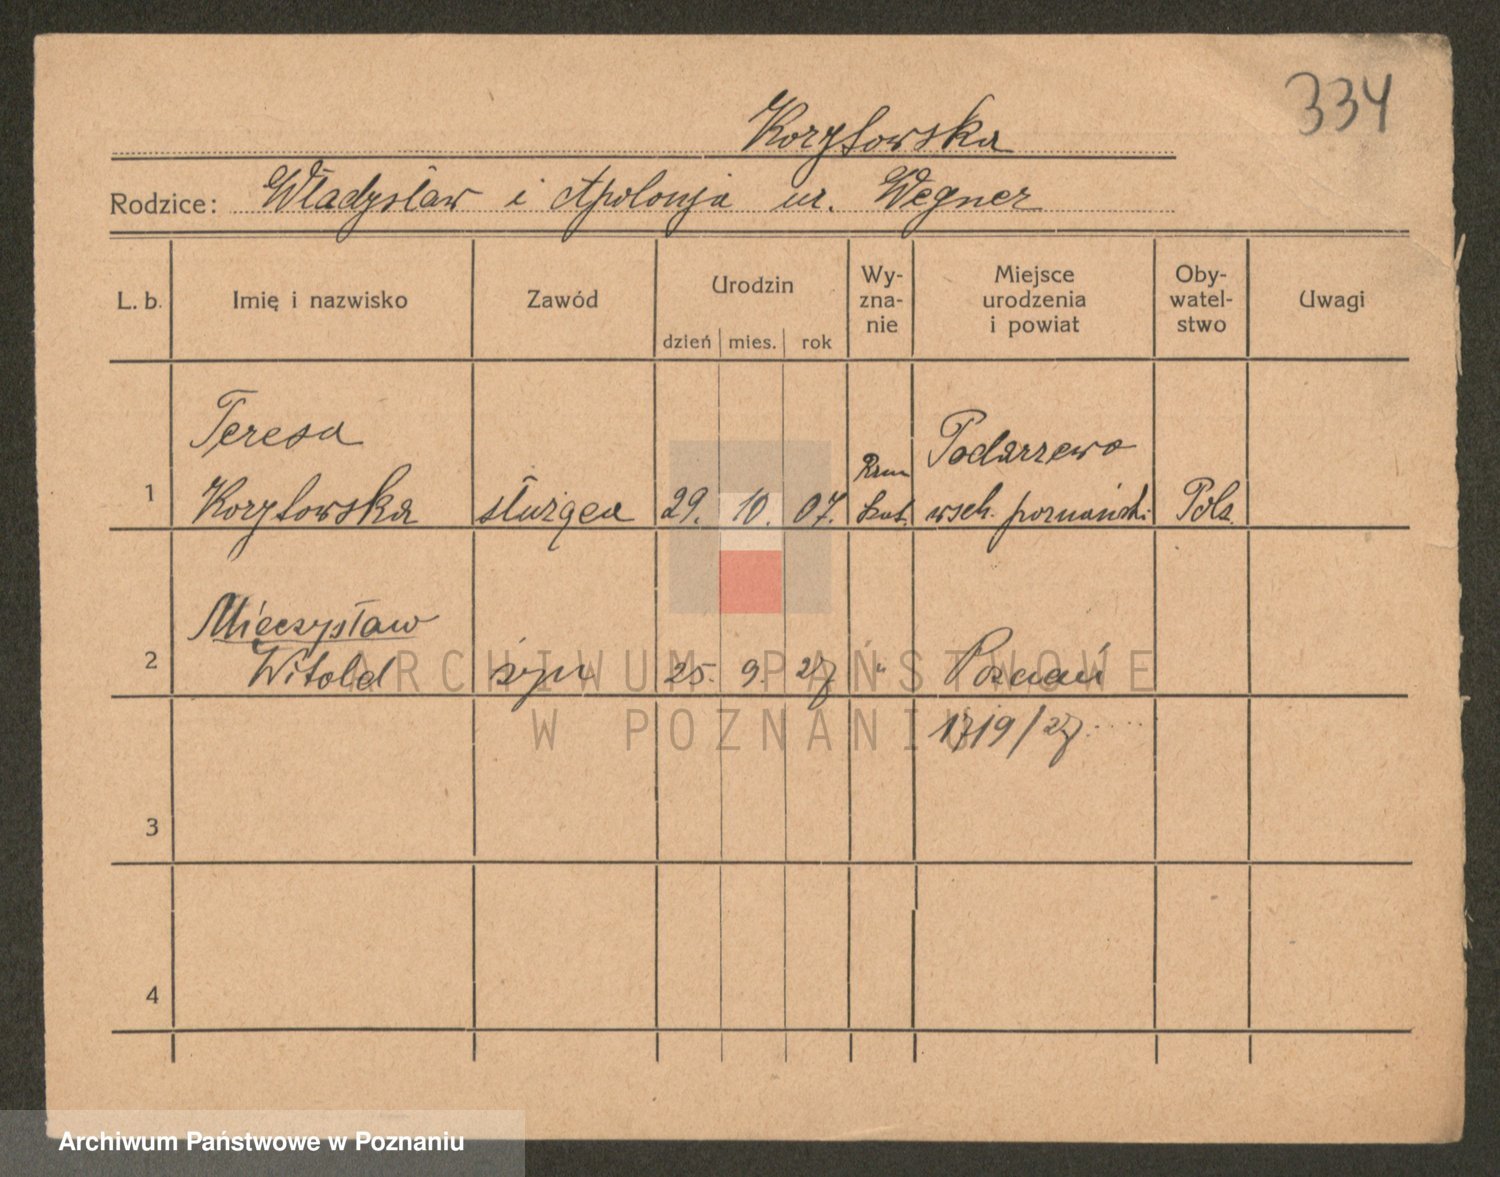 334
Korytowska
Rodzice: Władysław i Apolonja ur. Wegner
L. b. Imię i nazwisko Zawód Urodzin dzień mies. rok Wy-zna-nie Miejsce urodzenia i powiat Oby-watel-stwo Uwagi
Teresa Podarzewo
1 Korytowska służąca 29. 10. 07. Rzm kat. wsch. poznański Pols.
Mieczysław
2 Witold syn 25. 9. 27 " Poznań
1719/27.
3
4
ARCHIWUM PAŃSTWOWE
W POZNANIU
Archiwum Państwowe w Poznaniu